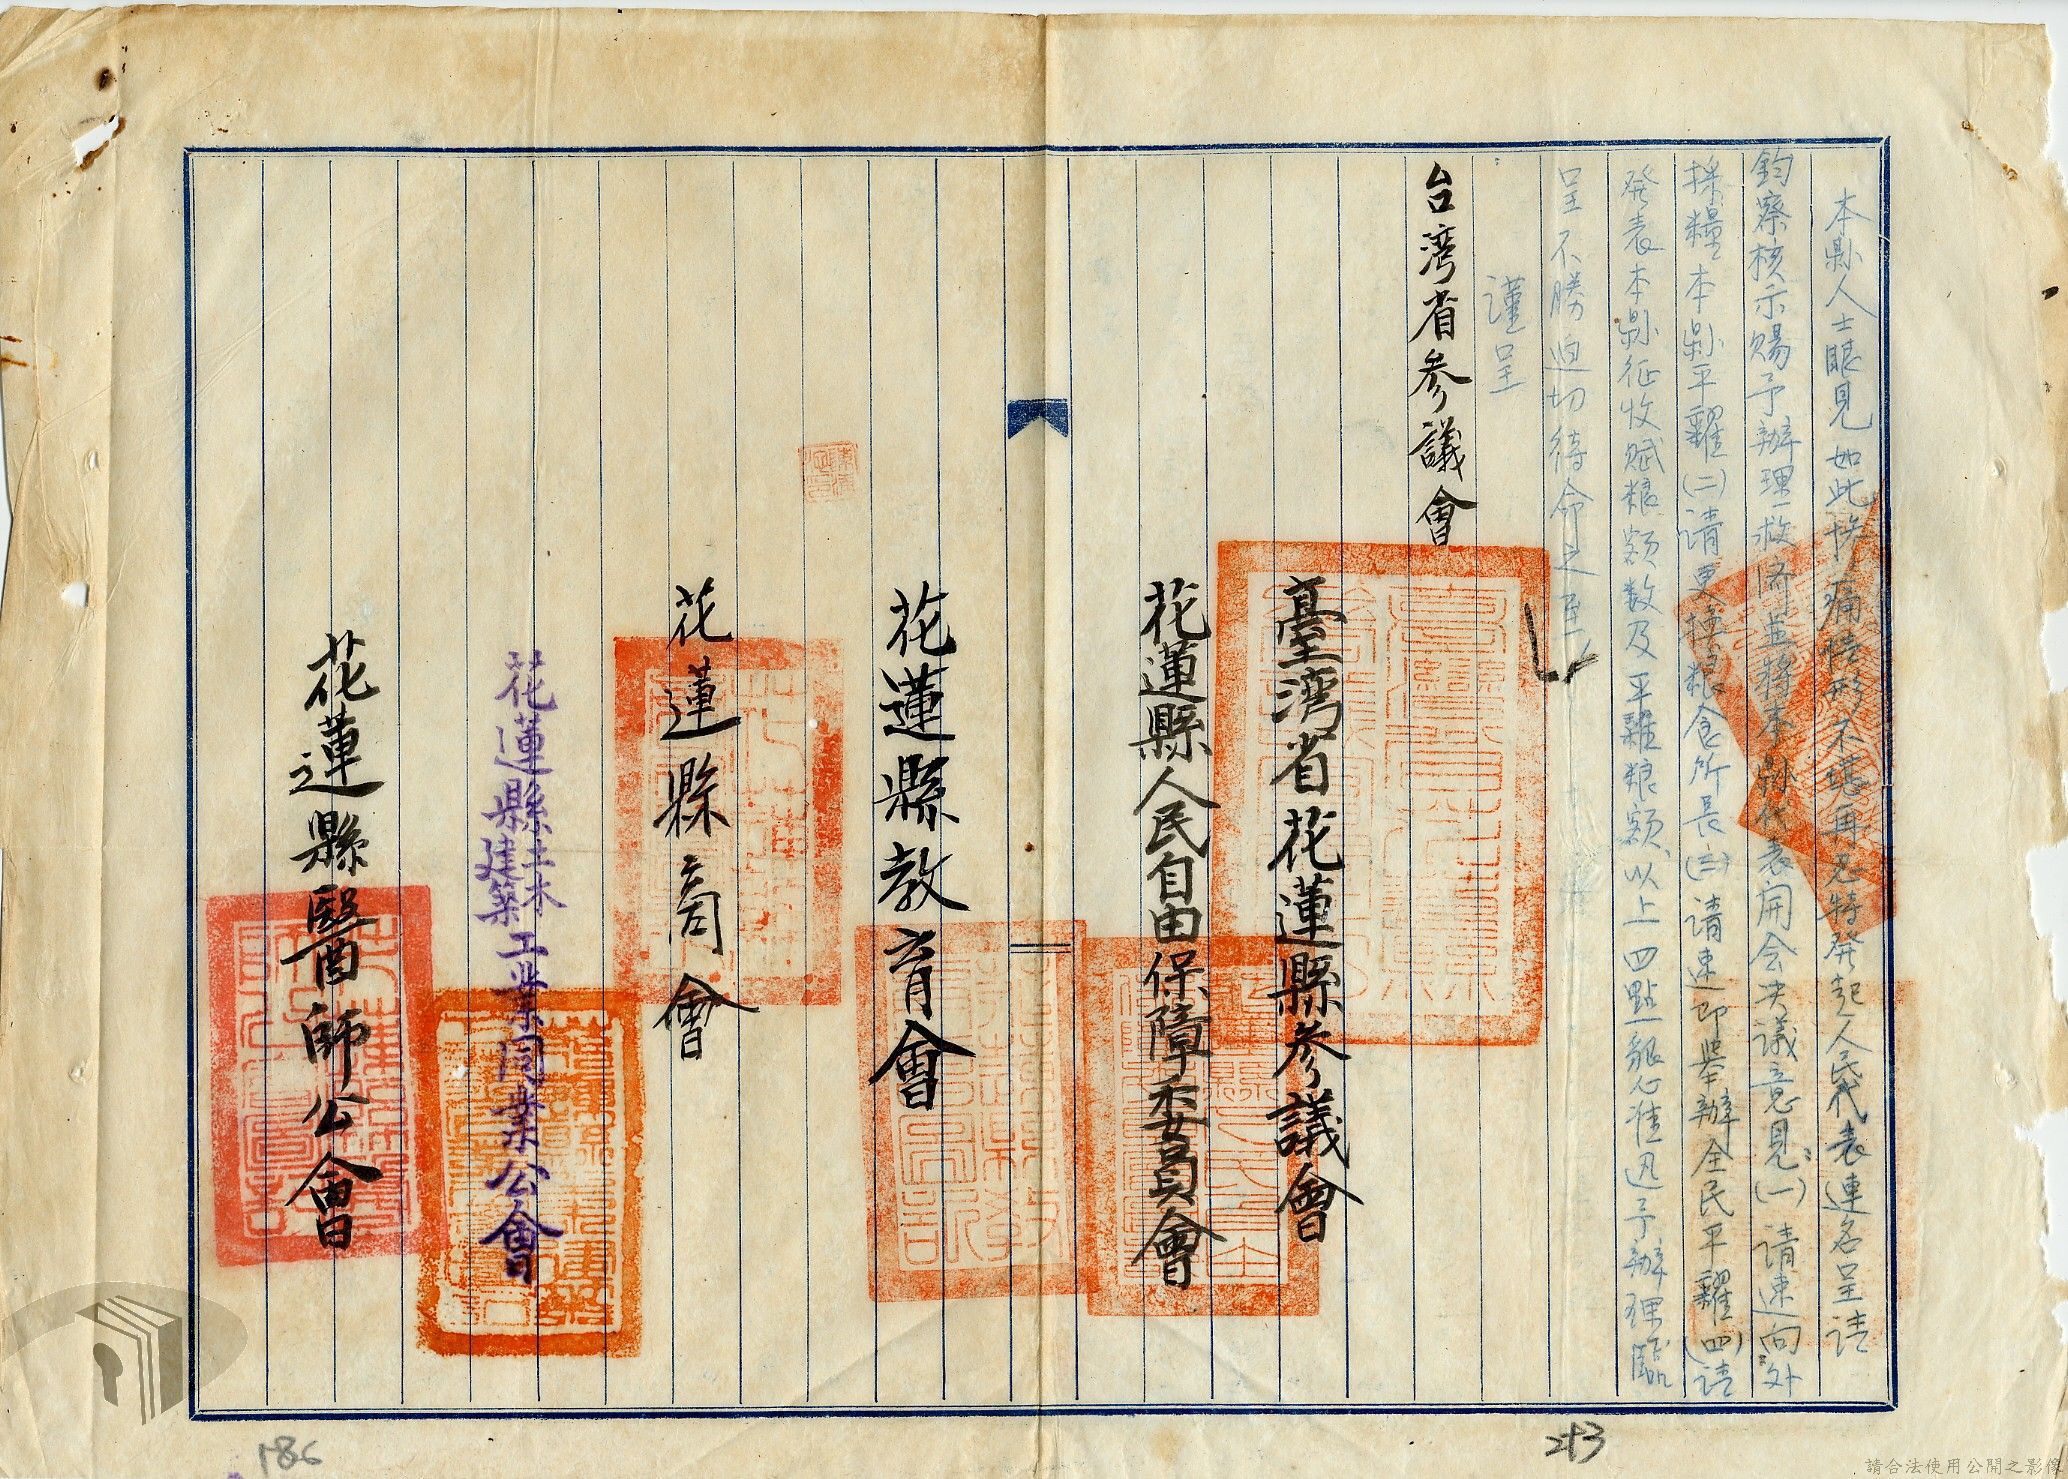 本縣人士眼見如此挨痛情形不堪再忍特發起人民代表連名呈請
鈞察核示賜予辦理救濟並將本縣代表開会决議意見：(一)請速向外
採糧本縣平糶(二)請更換粮食所長(三)請速即舉辦全民平糶(四)請
発表本縣征收賦粮額数及平糶粮額、以上四點懇心准迅予辦理臨
呈不勝迫切待命之至
謹呈
台湾省参議會
臺湾省花蓮縣参議會
花蓮縣人民自由保障委員會
花蓮縣教育會
花蓮縣商會
花蓮縣土木建築工業同業公會
花蓮縣醫師公會
186
243
請合法使用公開之影像